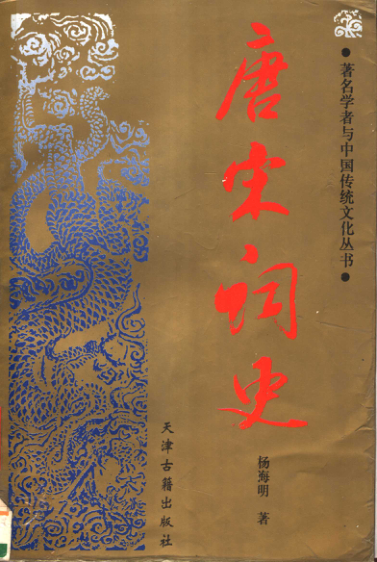 ●著名学者与中国传统文化丛书●
唐宋词史
杨海明 著
天津古籍出版社